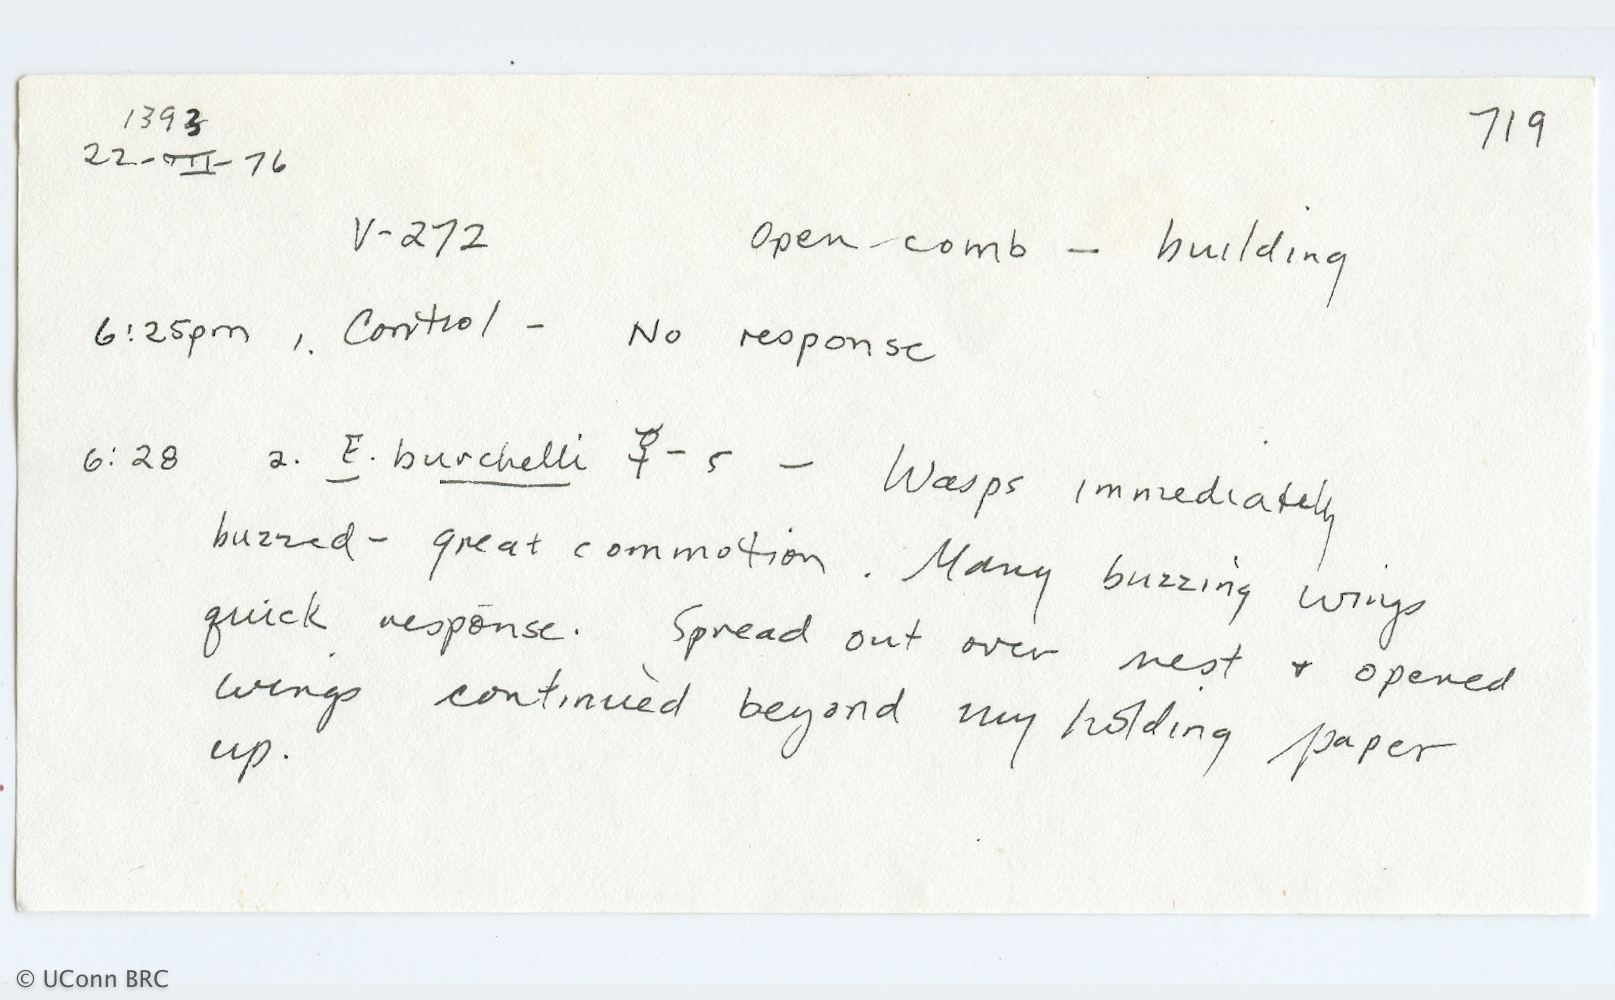 1393
719
22-VII-76
V-272
Open comb - building
6:25pm 1. Control - No response
6:28 2. E. burchelli ☿-s - Wasps immediately
buzzed - great commotion. Many buzzing wings
quick response. Spread out over nest + opened
wings continued beyond my holding paper
up.
© UConn BRC